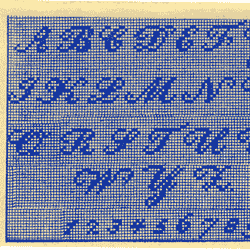 A B C D E F
I K L M N
Q R S T U
W Y Z
1 2 3 4 5 6 7 8